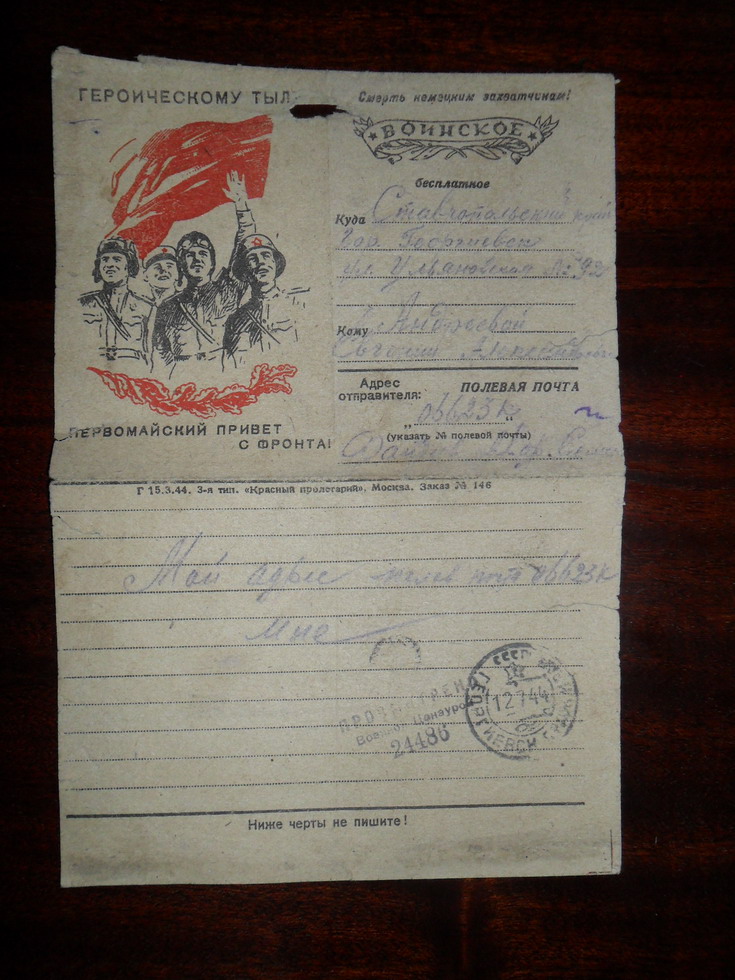 ГЕРОИЧЕСКОМУ ТЫЛ
Смерть немецким захватчикам!
ВОИНСКОЕ
бесплатное
Куда Ставропольский край
Гор. Георгиевск
ул. Ульяновская № 92
Кому Андреевой
Евгении
Адрес отправителя:
ПОЛЕВАЯ ПОЧТА
„06623К“
(указать № полевой почты)
ПЕРВОМАЙСКИЙ ПРИВЕТ
С ФРОНТА!
Г 15.3.44. 3-я тип. «Красный пролетарий». Москва. Заказ № 146
Мой адрес почта 06623К
мне
ПРОСМОТРЕНО
Военной Цензурой
24486
СССР
12744
ГЕОРГИЕВСК
Ниже черты не пишите!